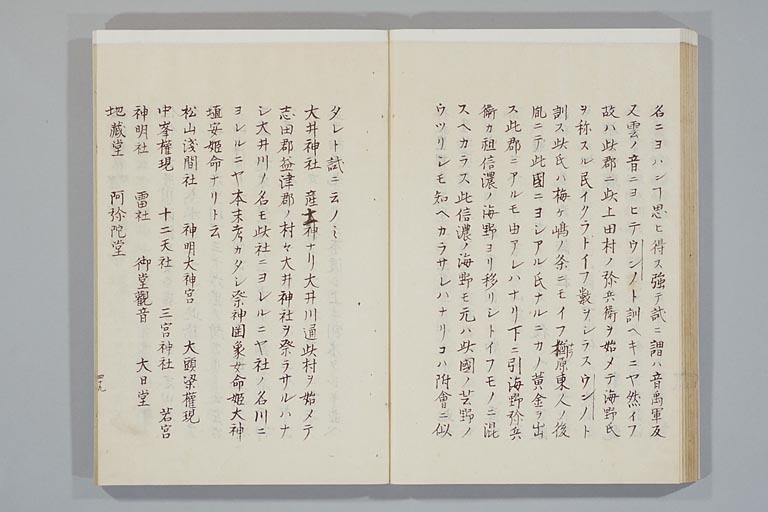 名ニヨハンヿ思ヒ得ス強テ試ニ謂ハ音萬軍反
又雲ノ音ニヨヒテウンノト訓ヘキニヤ然イフ
故ハ此郡ニ此上田村ノ弥兵衛ヲ始メテ海野氏
ヲ称スル民イクラトイフ數ヲシラスウンノト
訓ス此氏ハ梅ヶ嶋ノ条ニモイフ楢原東人ノ後
胤ニテ此國ニヨシアル氏ナルニカノ黄金ヲ出
ス此郡ニアルモ由アレハナリ下ニ引海野弥兵
衛カ祖信濃ノ海野ヨリ移リシトイフモノニ混
スヘカラス此信濃ノ海野モ元ハ此國ノ芸野ノ
ウツリシモ知ヘカラサレハナリコハ附會ニ似
タレト試ニ云ノミ
大井神社 産土神ナリ大井川通此村ヲ始メテ
志田郡益津郡ノ村々大井神社ヲ祭ラサルハナ
シ大井川ノ名モ此社ニヨレルニヤ社ノ名川ニ
ヨレルニヤ本末考カタシ祭神罔象女命姫大神
埴安姫命ナリト云
松山淺間社 神明大神宮 大頭梁權現
中峯權現 十二天社 三宮神社 若宮
神明社 雷社 御堂觀音 大日堂
地藏堂 阿弥陀堂